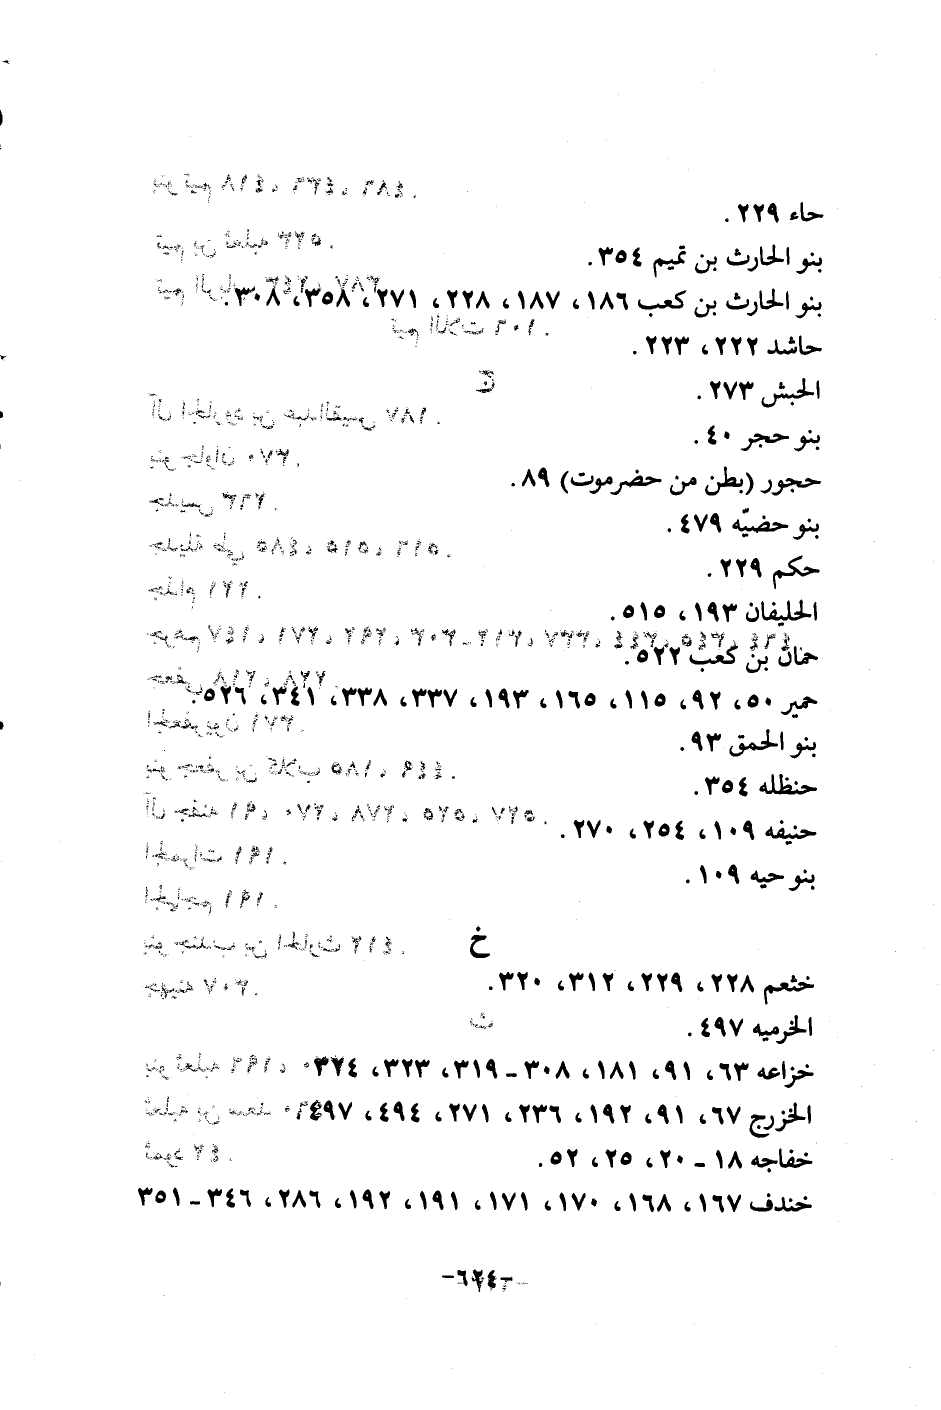 حاء ٢٢٩ .
بنو الحارث بن تميم ٣٥٤ .
بنو الحارث بن كعب ١٨٦ ، ١٨٧ ، ٢٢٨ ، ٢٧١ ، ٣٥٨ ، ٣٠٨ .
حاشد ٢٢٢ ، ٢٢٣ .
الحبش ٢٧٣ .
بنو حجر ٤٠ .
حجور (بطن من حضرموت) ٨٩ .
بنو حضنيّه ٤٧٩ .
حكم ٢٢٩ .
الحليفان ١٩٣ ، ٥١٥ .
حمان بن كعب ٥٢٢ .
حمير ٥٠ ، ٩٢ ، ١١٥ ، ١٦٥ ، ١٩٣ ، ٣٣٧ ، ٣٣٨ ، ٣٤١ ، ٥٢٦ .
بنو الحمق ٩٣ .
حنظله ٣٥٤ .
حنيفه ١٠٩ ، ٢٥٤ ، ٢٧٠ .
بنو حيه ١٠٩ .
خ
خثعم ٢٢٨ ، ٢٢٩ ، ٣١٢ ، ٣٢٠ .
الخرميه ٤٩٧ .
خزاعه ٦٣ ، ٩١ ، ١٨١ ، ٣٠٨ ـ ٣١٩ ، ٣٢٣ ، ٣٢٤
الخزرج ٦٧ ، ٩١ ، ١٩٢ ، ٢٣٦ ، ٢٧١ ، ٤٩٤ ، ٤٩٧
خفاجه ١٨ ـ ٢٠ ، ٢٥ ، ٥٢ .
خندف ١٦٧ ، ١٦٨ ، ١٧٠ ، ١٧١ ، ١٩١ ، ١٩٢ ، ٢٨٦ ، ٣٤٦ ـ ٣٥١
-٦٢٤-